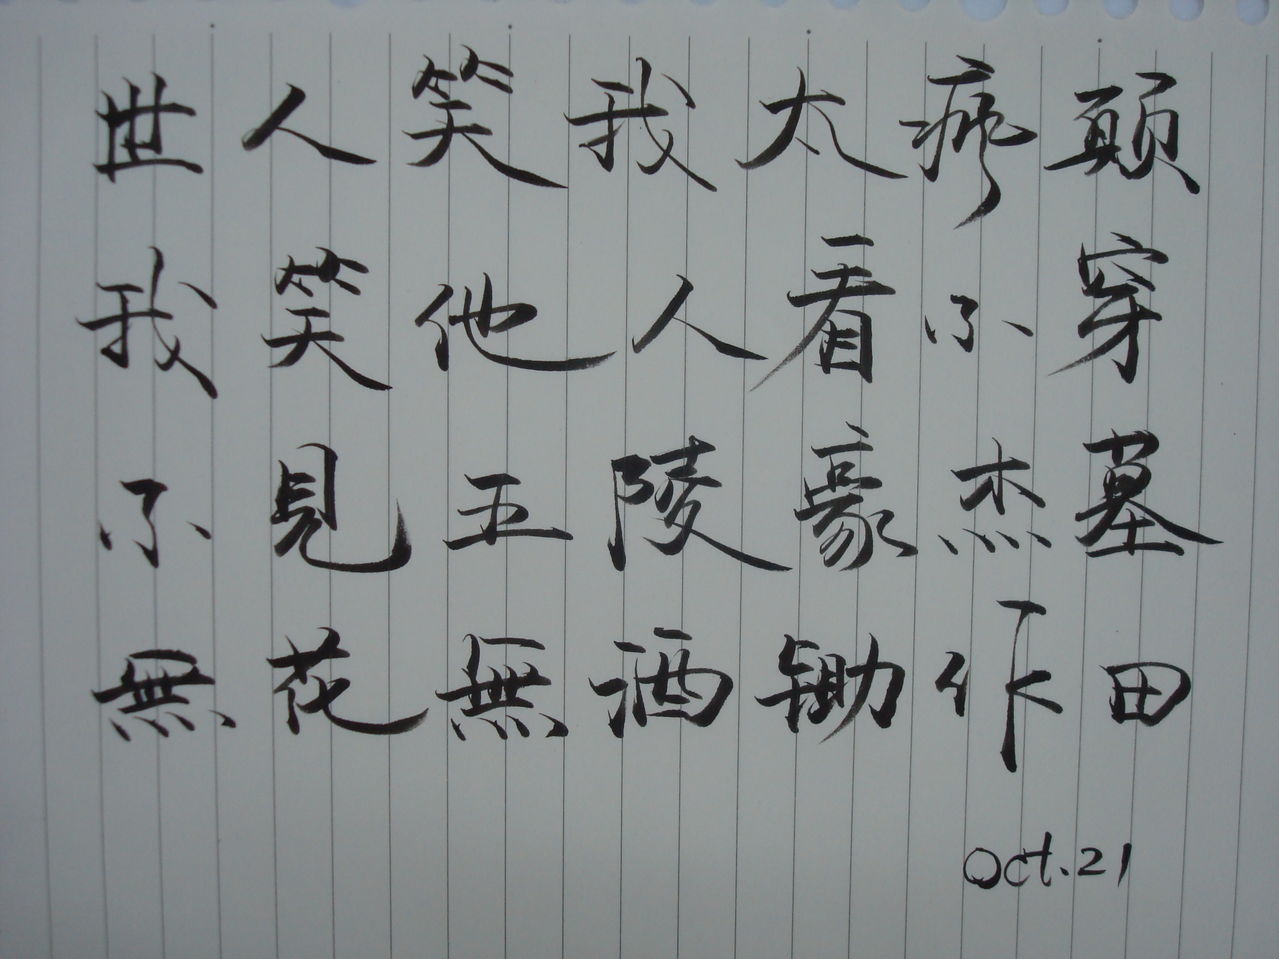 世人笑我太瘋顛
我笑他人看不穿
不見五陵豪杰墓
無花無酒锄作田
Oct.21